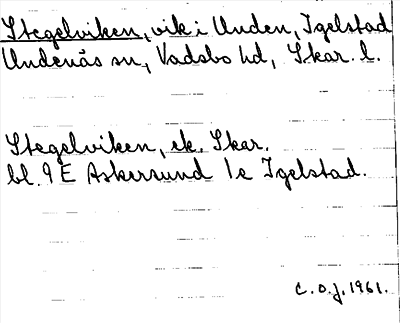 Stegelviken, vik i Unden, Igelstad
Undenäs sn, Vadsbo hd, Skar. l.
Stegelviken, ek. Skar.
bl. 9 E Askersund 1e Igelstad.
C.O.J. 1961.